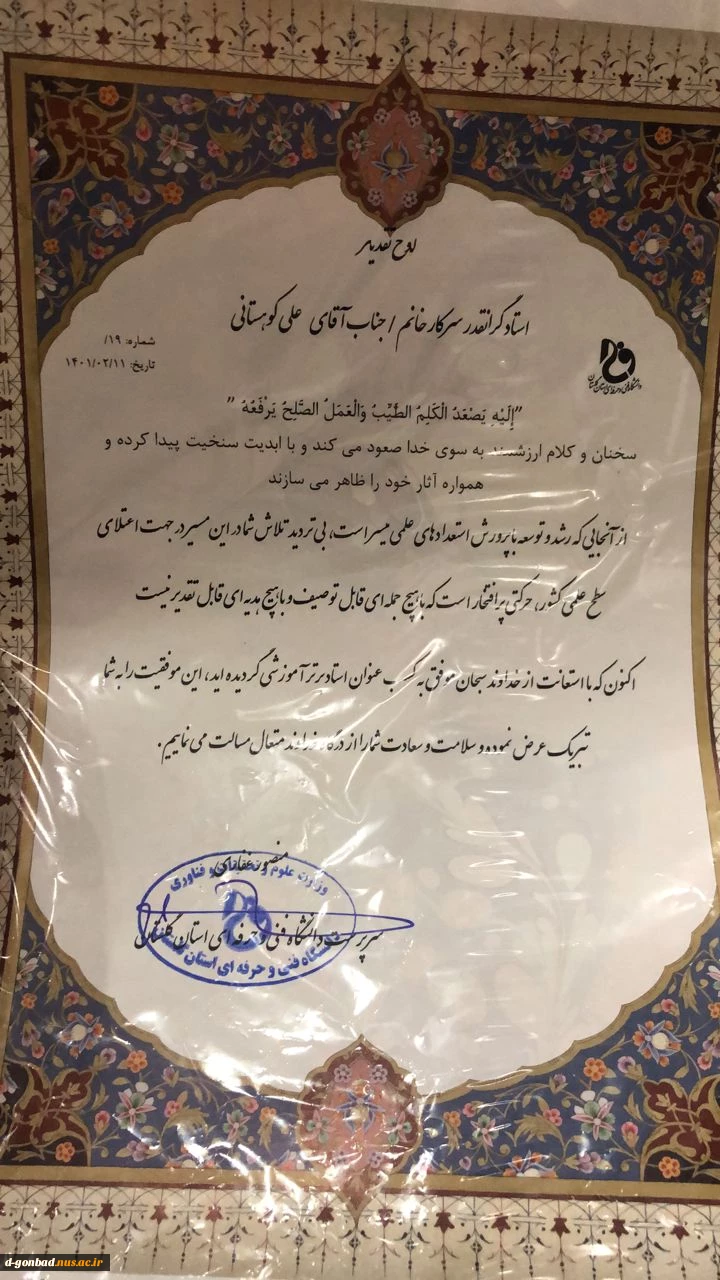 لوح تقدیر
استاد گرانقدر سرکار خانم / جناب آقای علی کوهستانی
شماره: ۱۹/
تاریخ: ۱۴۰۱/۰۲/۱۱
دانشگاه فنی و حرفه ای استان گلستان
”إِلَيْهِ يَصْعَدُ الْكَلِمُ الطَّيِّبُ وَالْعَمَلُ الصَّلِحُ يَرْفَعُهُ ”
سخنان و کلام ارزشمند به سوی خدا صعود می کند و با ابدیت سنخیت پیدا کرده و
همواره آثار خود را ظاهر می سازند
از آنجایی که رشد و توسعه با پرورش استعدادهای علمی میسر است، بی تردید تلاش شما در این مسیر در جهت اعتلای
سطح علمی کشور، حرکتی پرافتخار است که با هیچ جمله ای قابل توصیف و با هیچ هدیه ای قابل تقدیر نیست
اکنون که با استعانت از خداوند سبحان موفق به کسب عنوان استاد برتر آموزشی گردیده اید، این موفقیت را به شما
تبریک عرض نموده و سلامت و سعادت شما را از درگاه خداوند متعال مسالت می نماییم.
منصور غفاری
وزارت علوم و تحقیقات و فناوری
سرپرست دانشگاه فنی و حرفه ای استان گلستان
دانشگاه فنی و حرفه ای استان گلستان
d-gonbad.nus.ac.ir